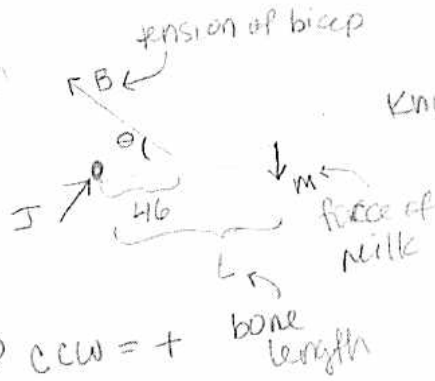 tension of bicep
B
θ
J
46
M
force of
Milk
L
bone
length
CCW = +